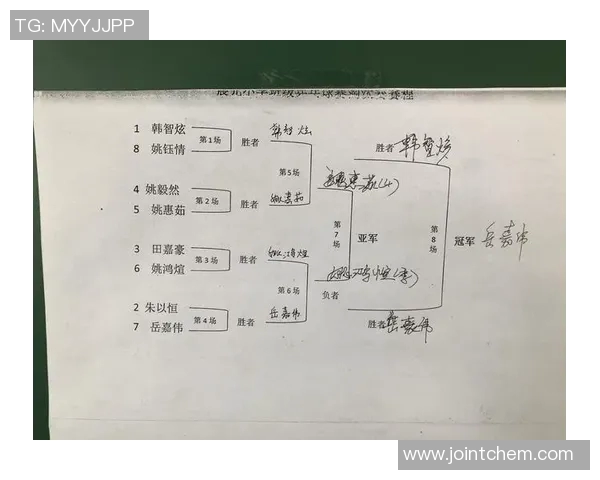 TG: MYYJJPP
1 韩智炫
8 姚钰情
第1场
胜者
韩智炫
4 姚毅然
5 姚惠茹
第2场
胜者
姚惠茹
第5场
3 田嘉豪
6 姚鸿煊
第3场
胜者
姚鸿煊
2 朱以恒
7 岳嘉伟
第4场
胜者
岳嘉伟
第6场
第7场
亚军
负者
胜者
韩智炫
胜者
岳嘉伟
第8场
冠军
岳嘉伟
www.jointchem.com